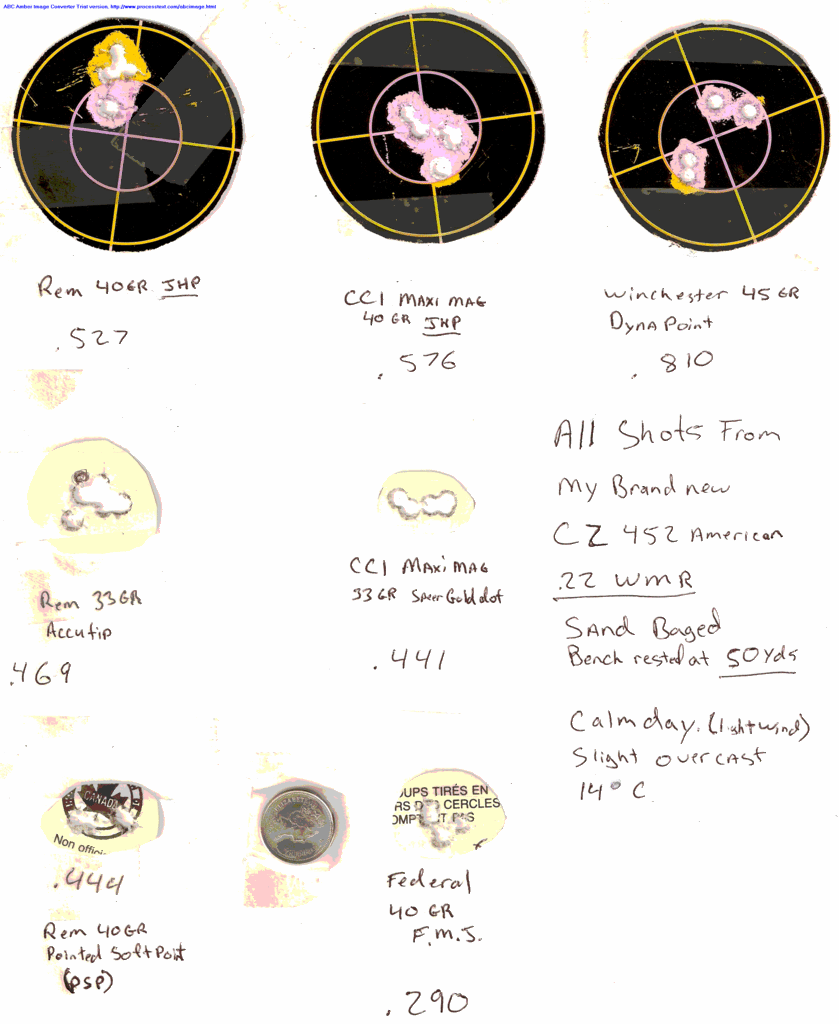 ABC Amber Image Converter Trial version, http://www.processtext.com/abcimage.html
Rem 40GR JHP
.527
CCI MAXI MAG
40 GR JHP
.576
Winchester 45 GR
DYNA Point
.810
All Shots From
My Brand new
CZ 452 American
.22 WMR
SAnd Baged
Bench rested at 50 Yds
Calm day. (light wind)
Slight overcast
14° C
Rem 33GR
Accutip
.469
CCI MAXI MAG
33 GR Speer Gold dot
.441
CANADA
Non offici
.444
Rem 40GR
Pointed Soft Point
(PSP)
OUPS TIRÉS EN
CERCLES
PAS
Federal
40 GR
F.M.J.
.290